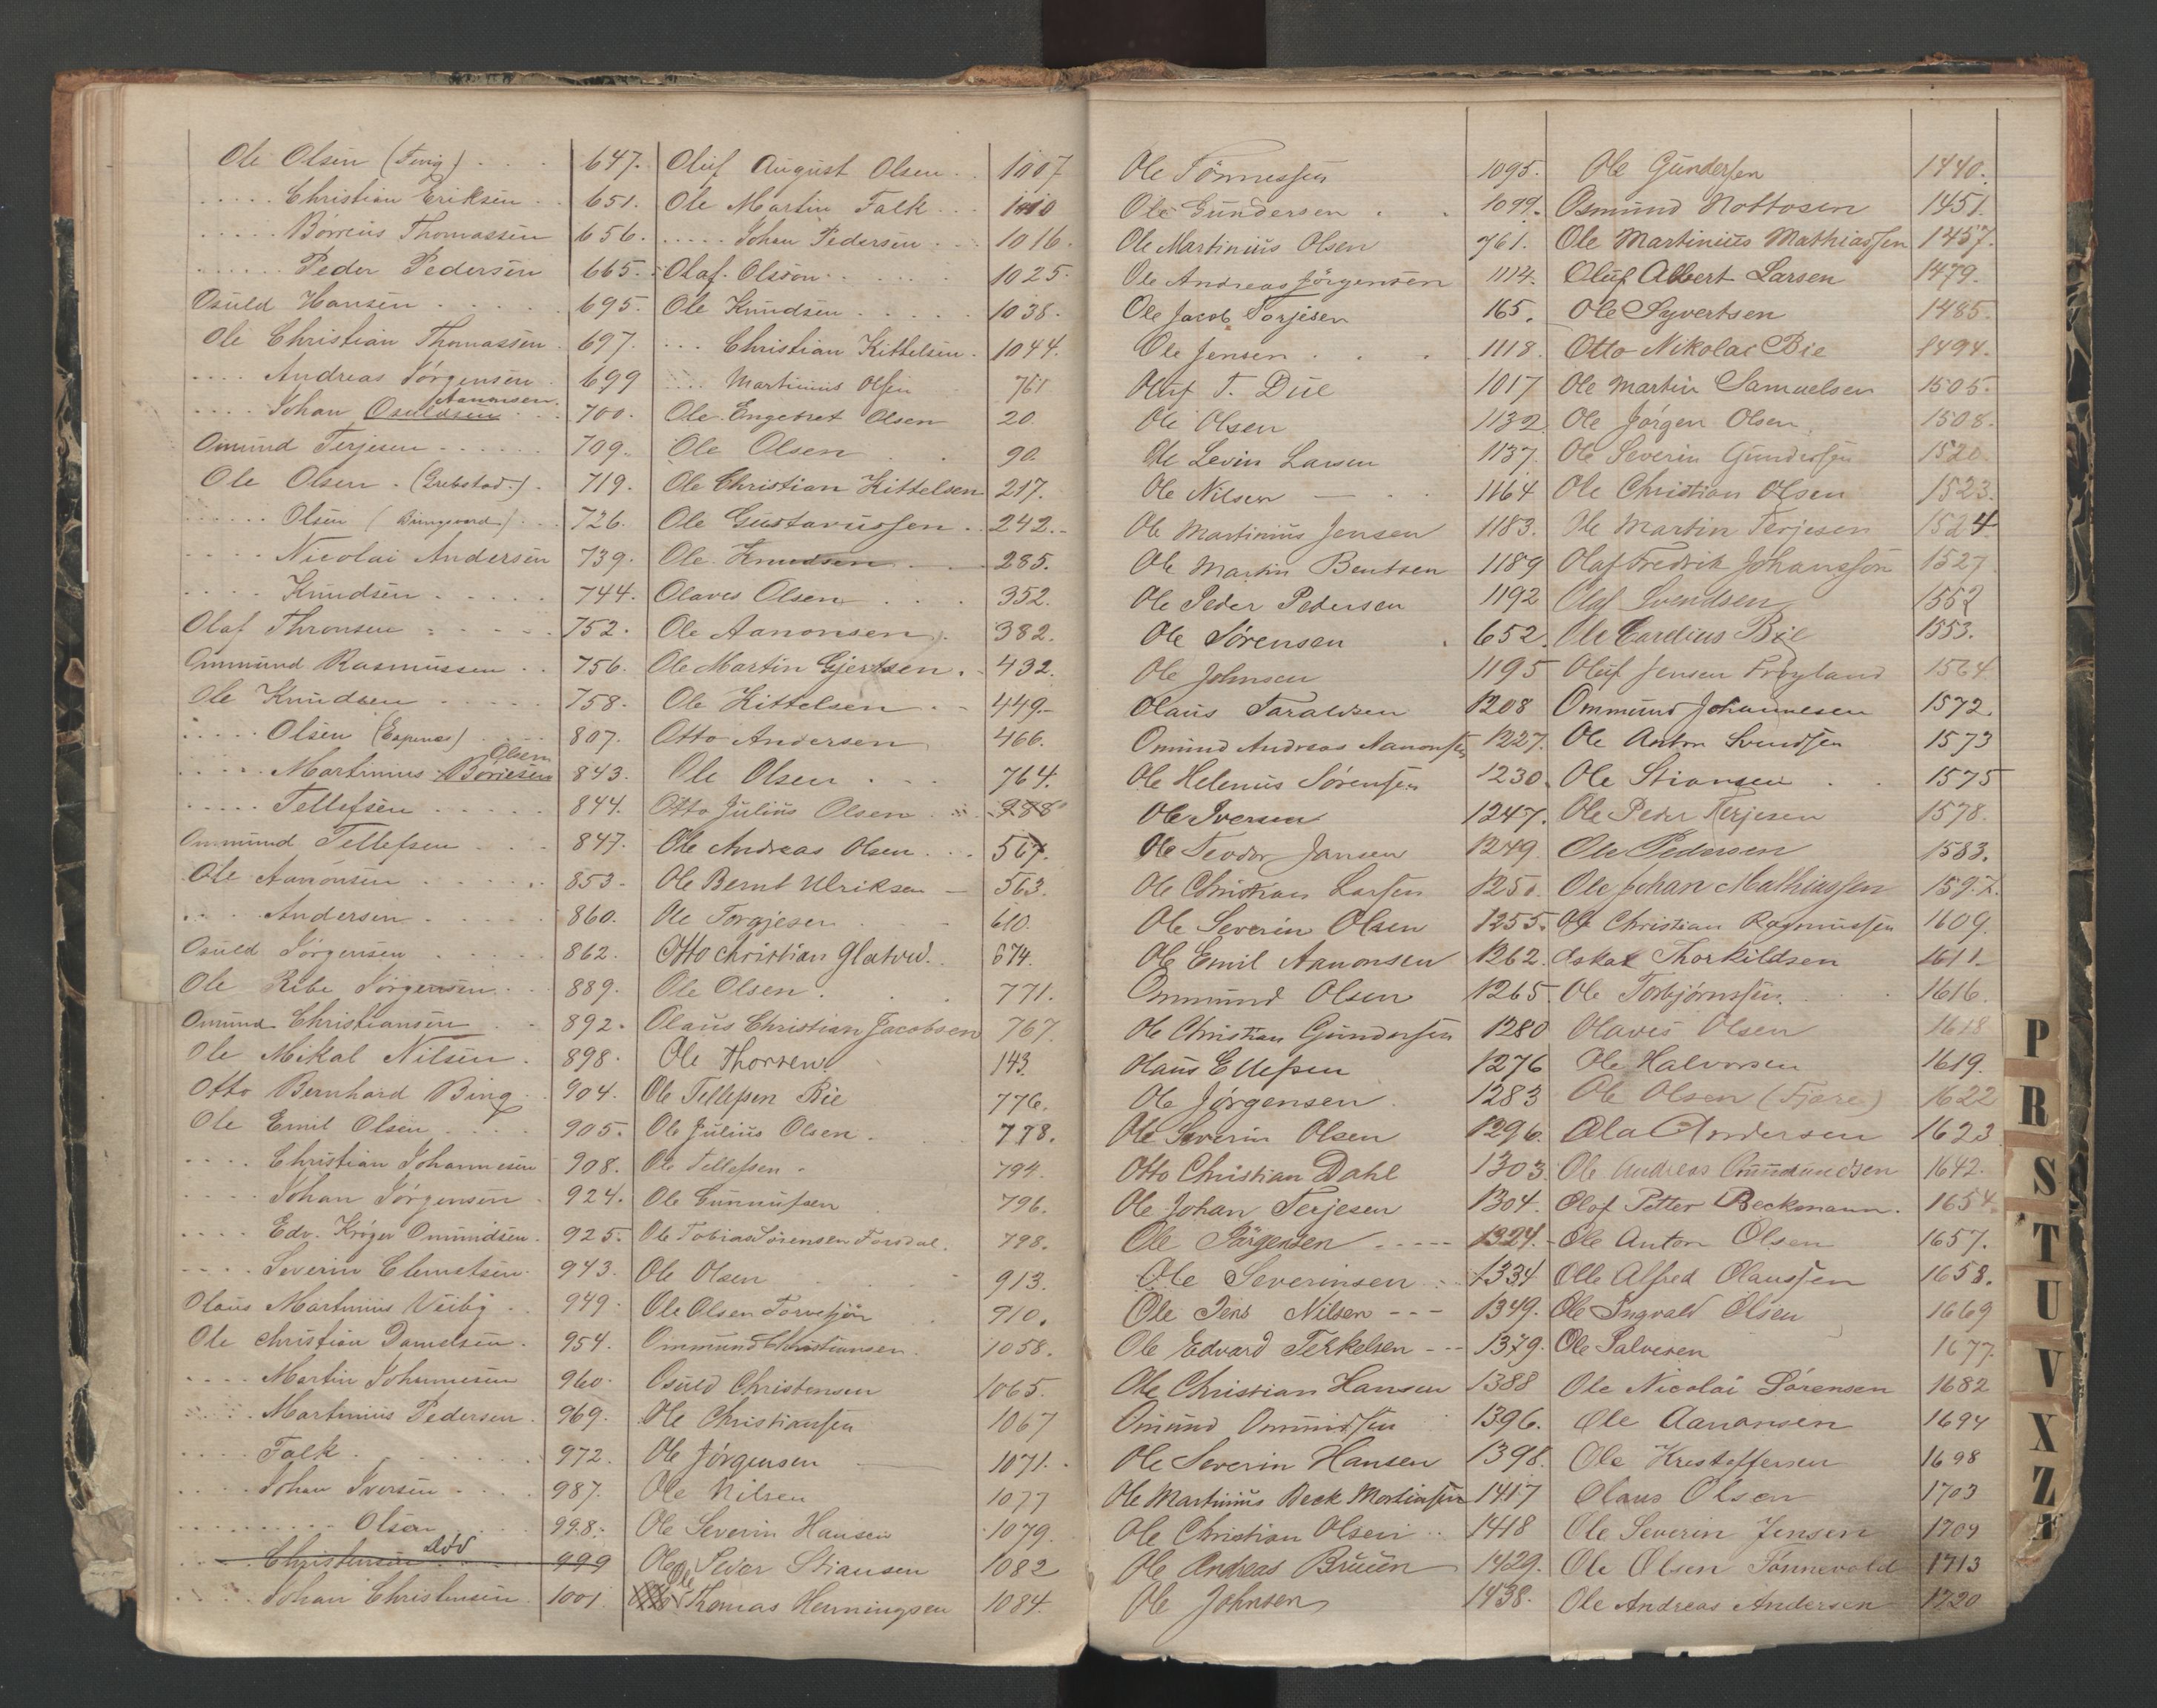 Ole Olsen (Teng) . . . 647.
. . . . . Christian Eriksen . . 651.
. . . . . Börreus Thomassen 656.
. . . . . Peder Pedersen 665.
Osuld Hansen . . . . 695.
Ole Christian Thomassen . 697.
. . . . Andreas Jörgensen . 699
. . . . Johan Osuldsen Aanonsen . . 700.
Omund Terjesen . . . . . . 709.
Ole Olsen . (Grebstad.) . 719.
. . . . . . Olsen ( ) . . . 726.
. . . . . Nicolai Andersen 739.
. . . . . Knudsen . . . . . 744.
Olaf Thronsen . . . . . 752.
Ommund Rasmussen . . 756.
Ole Knudsen . . . . . 758.
. . . . . Olsen (Espenes) . . 807.
. . . . . Martinius Börresen Olsen 843.
. . . . . Tellefsen . . . . . 844.
Ommund Tellefsen . . . 847.
Ole Aanonsen . . . . . 853.
. . . . Andersen . . . . . 860.
Osuld Jörgensen . . . . . 862.
Ole Ribe Jörgensen . . . 889.
Omund Christiansen . . 892.
Ole Mikal Nilsen . 898.
Otto Bernhard Bing . 904.
Ole Emil Olsen . . . . 905.
. . . . Christian Johannesen 908.
. . . . Johan Jörgensen . 924.
. . . . Edv. Kröger Omundsen . 925.
. . . . Severin Clemetsen . 943.
Olaus Martinius Veiby . . 949.
Ole Christian Danielsen . 954.
. . . . Martin Johannesen 960.
. . . . Martinius Pedersen . 969.
. . . . Falk . . . . . . 972.
. . . . Johan Iversen . . . . 987.
. . . . . . . . . Olsen . . 998.
. . . . Christensen död 999
. . . . Johan Christensen . 1001.
Oluf August Olsen . . 1007
Ole Martin Falk . . . 1010
. . . . . Johan Pedersen . . 1016.
Olaf Olsson . . . . . . 1025.
Ole Knudsen . . . . . 1038.
. . . Christian Kittelsen . 1044.
. . . . Martinius Olsen 761
Ole Engebret Olsen 20
Ole Olsen . . 90.
Ole Christian Kittelsen 217.
Ole Gustavussen . . 242.
Ole Knudsen 285.
Olaves Olsen . . . 352.
Ole Aanonsen . 382.
Ole Martin Gjertsen . 432.
Ole Kittelsen . . 449.
Otto Andersen 466.
Ole Olsen . . . 764.
Otto Julius Olsen . . 988
Ole Andreas Olsen . . . 567.
Ole Bernt Ulriksen 563.
Ole Torgjesen . . . 610.
Otto Christian Glatved . 674.
Ole Olsen . . . . 771.
Olaus Christian Jacobsen 767.
Ole Thorsen 143.
Ole Tellefsen Bie 776.
Ole Julius Olsen . . 778.
Ole Tellefsen . 794.
Ole Gunnufsen . 796.
Ole Tobias Sörensen Forsdal . 798.
Ole Olsen . . . 913.
Ole Olsen Torvesjön . 910.
Ommund Christiansen . 1058.
Osuld Christensen 1065.
Ole Christiansen 1067
Ole Jörgensen 1071.
Ole Nilsen 1077
Ole Severin Hansen 1079.
Ole Peder Stiansen 1082
Ole Thomas Henningsen 1084.
Ole Tönnessen 1095.
Ole Gundersen . . 1099.
Ole Martinius Olsen 761.
Ole Andreas Jörgensen 1114.
Ole Jacob Torjesen 165.
Ole Jensen . . . 1118.
Oluf T. Due 1017
Ole Olsen 1132
Ole Levin Larsen 1137.
Ole Nilsen . . 1164
Ole Martinius Jensen 1183.
Ole Martin Bentsen 1189
Ole Peder Pedersen 1192
Ole Sörensen . 652.
Ole Johnsen 1195
Olaus Taraldsen 1208
Omund Andreas Aanonsen 1227.
Ole Helenius Sörensen 1230.
Ole Iversen 1247.
Ole Teodor Jansen 1249
Ole Christian Larsen 1250.
Ole Severin Olsen 1255.
Ole Emil Aanonsen 1262.
Ommund Olsen 1265.
Ole Christian Gundersen 1280
Olaus Ellefsen 1276
Ole Jörgensen . 1283
Ole Severin Olsen 1296.
Otto Christian Dahl 1303.
Ole Johan Terjesen 1304.
Ole Jörgensen - - - - - 1324.
Ole Severinsen . . 1334
Ole Jens Nilsen - - - 1349.
Ole Edvard Terkelsen - - - 1379.
Ole Christian Hansen 1388
Omund Omundsen 1396.
Ole Severin Hansen 1398.
Ole Martinius Beck Mortinsen 1417
Ole Christian Olsen . . 1418
Ole Andreas Bruun 1429.
Ole Johnsen 1438.
Ole Gundersen 1440.
Osmund Nottosen 1451.
Ole Martinius Mathiassen 1457.
Oluf Albert Larsen 1479.
Ole Syvertsen 1485.
Otto Nikolai Bie 1494.
Ole Martin Samuelsen 1505.
Ole Jörgen Olsen . 1508.
Ole Severin Gundersen 1520
Ole Christian Olsen 1523.
Ole Martin Terjesen 1524
Olaf Fredrik Johansson 1527
Olaf Svendsen 1552
Ole Carelius Bie 1553.
Oluf Jensen Fröyland 1564
Ommund Johannesen 1572.
Ole Anton Svendsen 1573
Ole Stiansen . . 1575
Ole Peder Terjesen 1578.
Ole Pedersen 1583.
Ole Johan Mathiassen 1597.
Ole Christian Rasmussen 1609.
Oskar Thorkildsen 1611.
Ole Torbjörnssen . . . 1616.
Olaves Olsen 1618
Ole Halvorsen 1619.
Ole Olsen (Fjære) 1622
Ola Andersen 1623
Ole Andreas Omundsen 1642.
Olaf Petter Beckmann . 1654.
Ole Anton Olsen 1657.
Olle Alfred Olaussen 1658.
Ole Ingvald Olsen 1669
Ole Salvesen 1677.
Ole Nicolai Sörensen 1682
Ole Aanonsen 1694
Ole Kristoffersen 1698
Olaus Olsen 1703
Ole Severin Jensen 1709
Ole Olsen Tönnevold 1713
Ole Andreas Andersen 1720
P
R
S
T
U
V
X
Z